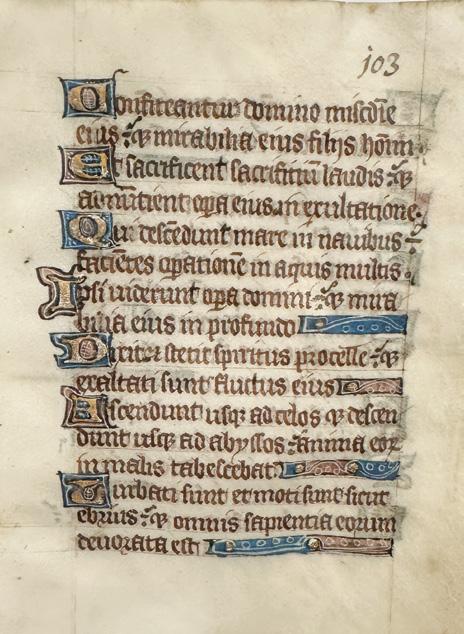 103
Confiteantur domino miscdie
eius : et mirabilia eius filijs homi
Et sacrificent sacrificiũ laudis : et
annũtient opa eius in exultatione.
Qui descẽdunt mare in nauibus
faciẽtes opationẽ in aquis multis.
Ipsi uiderunt opa domini : et mira
bilia eius in profundo
Dixit et stetit spiritus procelle : et
exaltati sunt fluctus eius
Ascendunt usqz ad celos et descen
dunt usqz ad abyssos : anima eor
in malis tabescebat
Turbati sunt et moti sunt sicut
ebrius : et omnis sapientia eorum
deuorata est